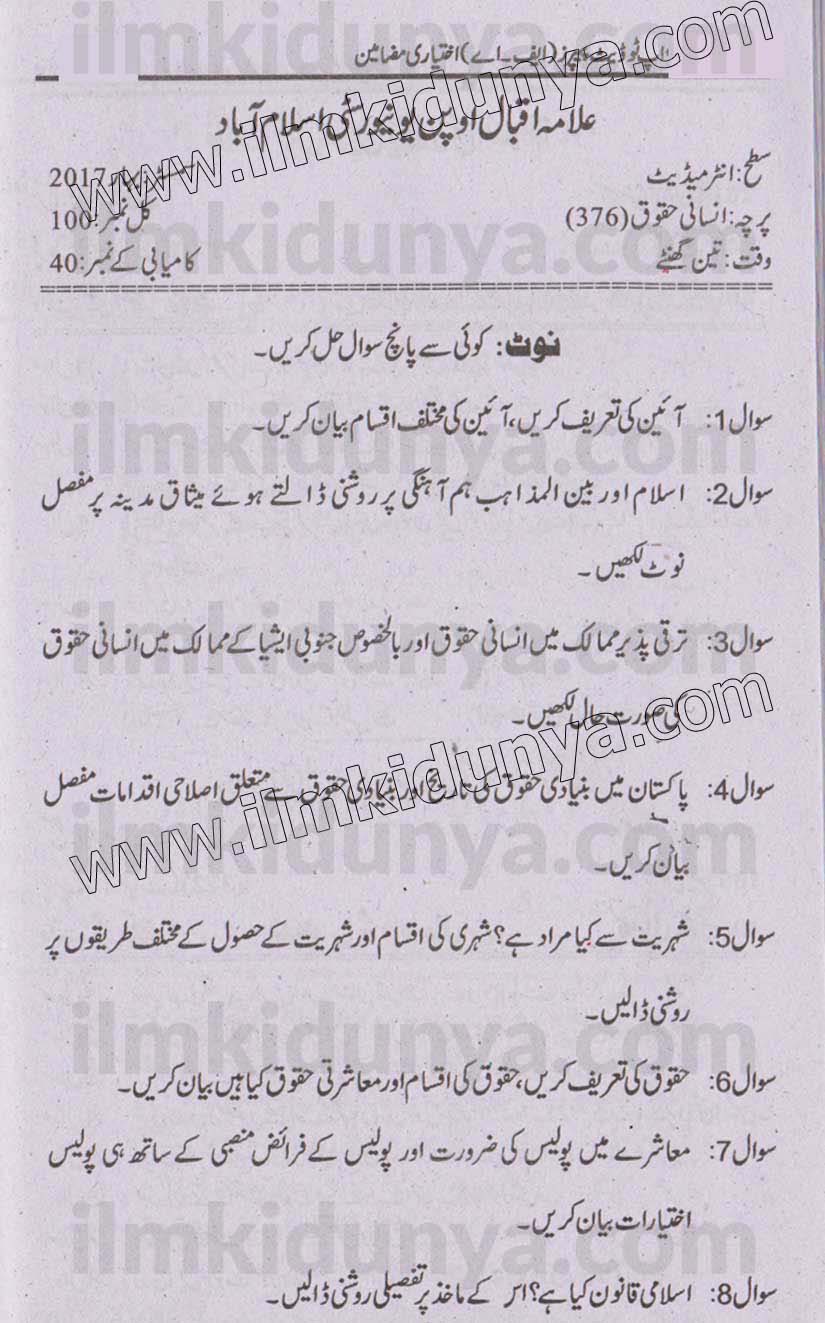 اپ ٹو ڈیٹ پیپرز (ایف۔اے) اختیاری مضامین
علامہ اقبال اوپن یونیورسٹی اسلام آباد
سطح: انٹرمیڈیٹ بہار 2017
پرچہ: انسانی حقوق (376) کل نمبر: 100
وقت: تین گھنٹے کامیابی کے نمبر: 40
نوٹ: کوئی سے پانچ سوال حل کریں۔
سوال 1: آئین کی تعریف کریں، آئین کی مختلف اقسام بیان کریں۔
سوال 2: اسلام اور بین المذاہب ہم آہنگی پر روشنی ڈالتے ہوئے میثاق مدینہ پر مفصل
نوٹ لکھیں۔
سوال 3: ترقی پذیر ممالک میں انسانی حقوق اور بالخصوص جنوبی ایشیا کے ممالک میں انسانی حقوق
کی صورت حال لکھیں۔
سوال 4: پاکستان میں بنیادی حقوق کی تاریخ اور بنیادی حقوق سے متعلق اصلاحی اقدامات مفصل
بیان کریں۔
سوال 5: شہریت سے کیا مراد ہے؟ شہری کی اقسام اور شہریت کے حصول کے مختلف طریقوں پر
روشنی ڈالیں۔
سوال 6: حقوق کی تعریف کریں، حقوق کی اقسام اور معاشرتی حقوق کیا ہیں بیان کریں۔
سوال 7: معاشرے میں پولیس کی ضرورت اور پولیس کے فرائض منصبی کے ساتھ ہی پولیس
اختیارات بیان کریں۔
سوال 8: اسلامی قانون کیا ہے؟ اس کے ماخذ پر تفصیلی روشنی ڈالیں۔
www.ilmkidunya.com
www.ilmkidunya.com
ilmkidunya.com
ilmkidunya.com
ilmkidunya.com
ilmkidunya.com
ilmkidunya.com
ilmkidunya.com
ilmkidunya.com